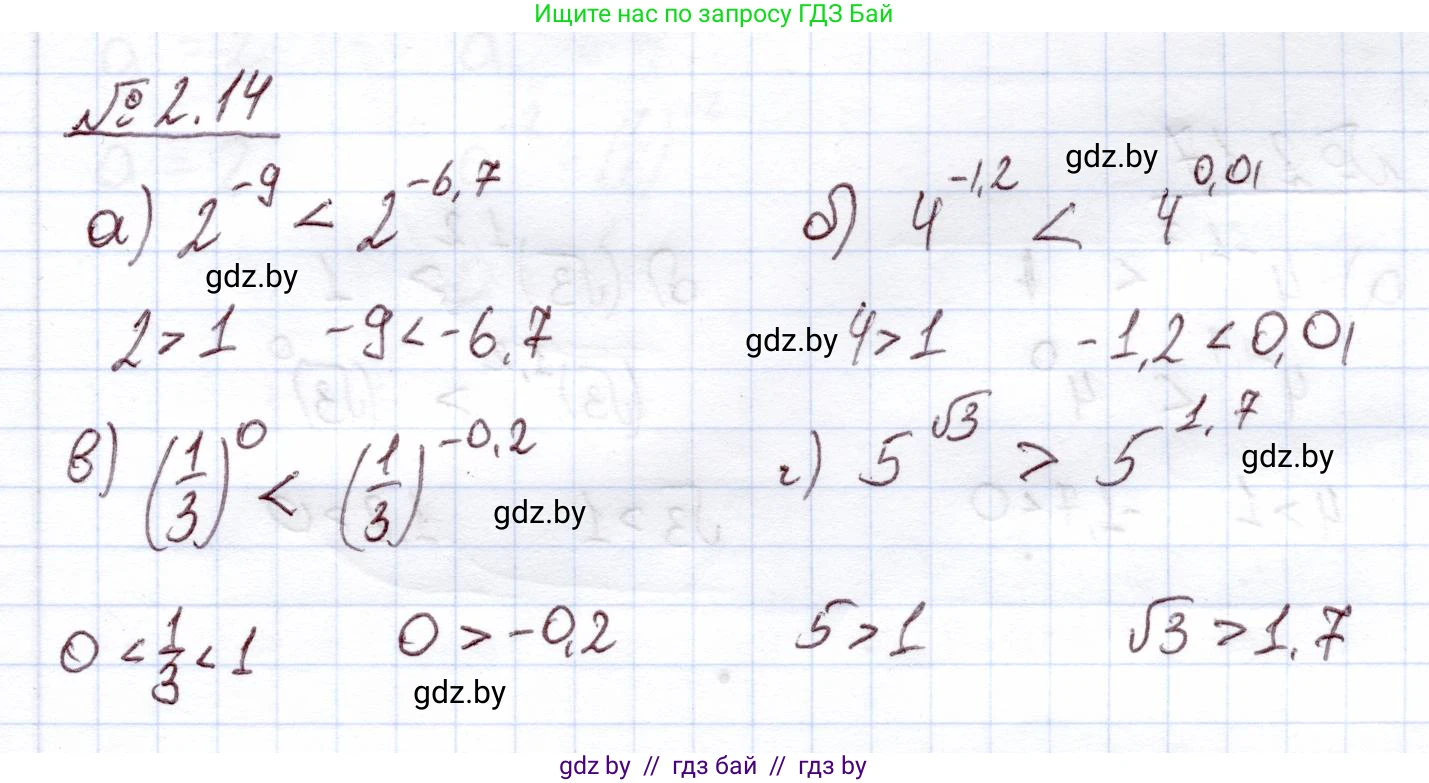 Ищите нас по запросу ГДЗ Бай
№ 2.14
а) 2^{-9} < 2^{-6,7} б) 4^{-1,2} < 4^{0,01}
gdz.by
gdz.by
2 > 1 -9 < -6,7 4 > 1 -1,2 < 0,01
gdz.by
в) (1/3)^0 < (1/3)^{-0,2} г) 5^{√3} > 5^{1,7}
gdz.by
gdz.by
0 < 1/3 < 1 0 > -0,2 5 > 1 √3 > 1,7
gdz.by
gdz by // гдз бай // gdz by